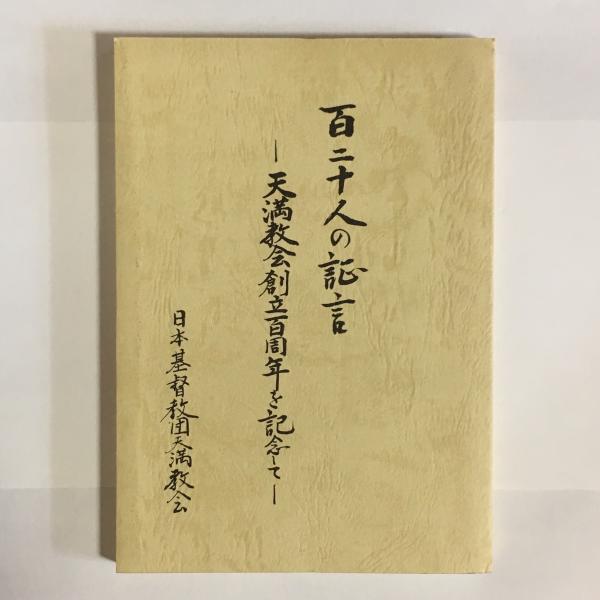 百二十人の証言
―天満教会創立百周年を記念して―
日本基督教団天満教会